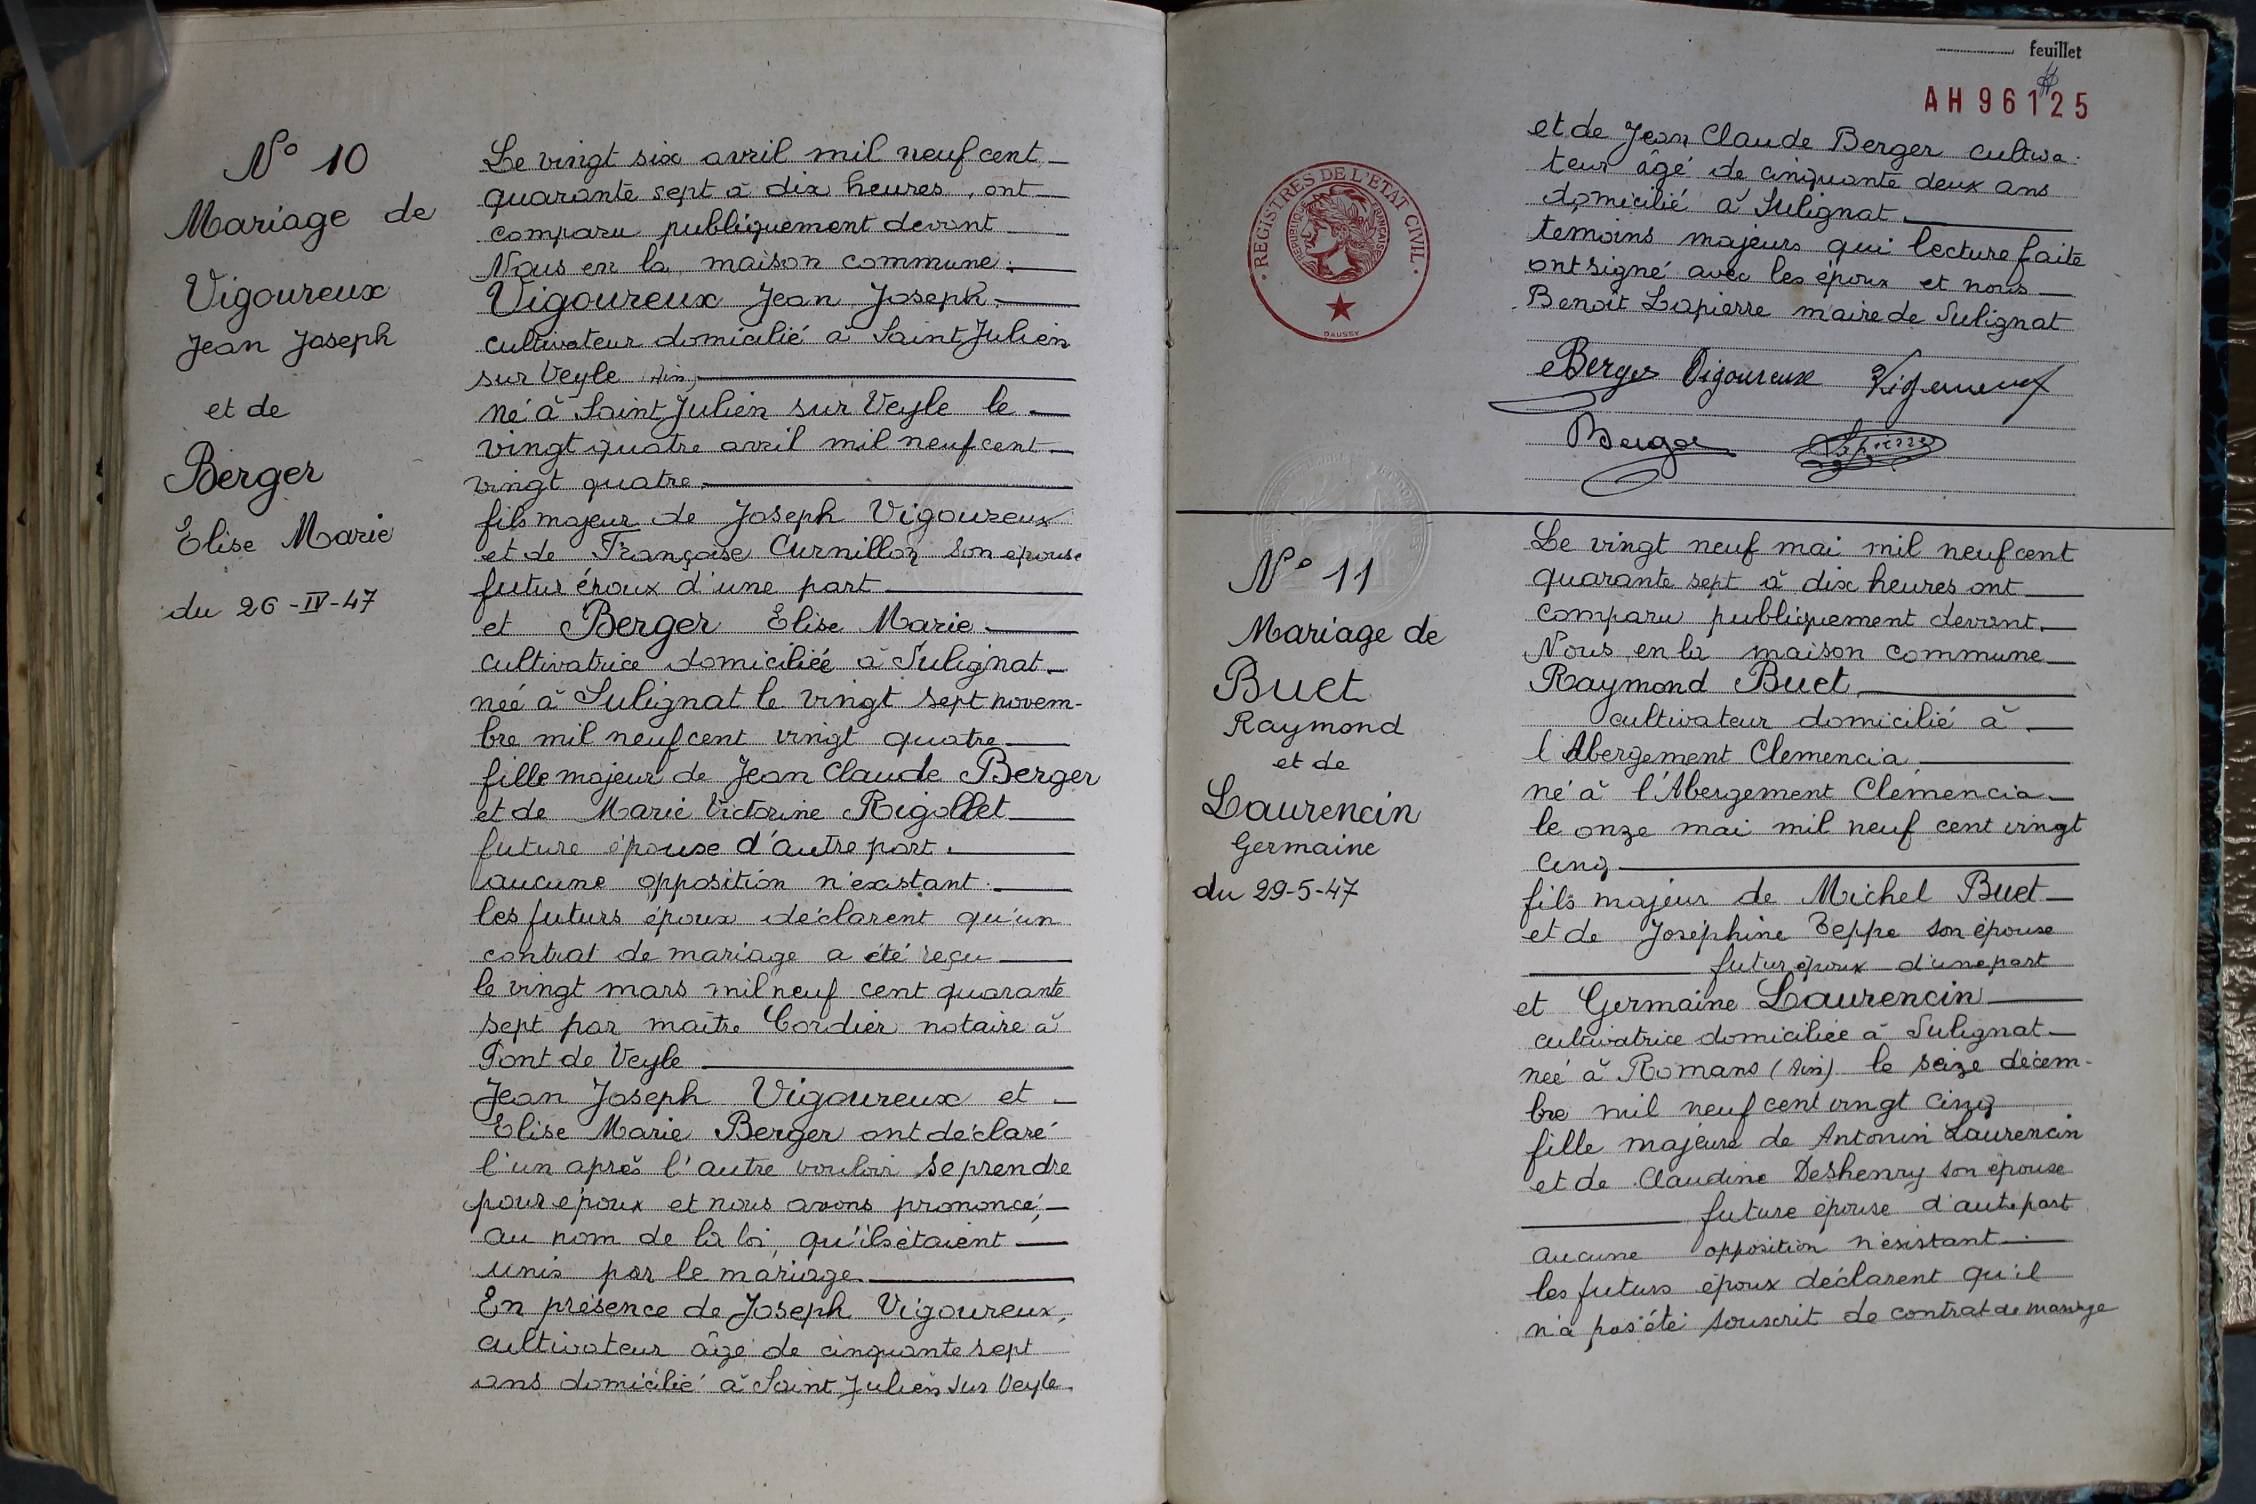 N° 10
Mariage de
Vigoureux
Jean Joseph
et de
Berger
Elise Marie
du 26-IV-47
Le vingt six avril mil neuf cent
quarante sept à dix heures, ont
comparu publiquement devant
Nous en la maison commune.
Vigoureux Jean Joseph
cultivateur domicilié à Saint Julien
sur Veyle Ain,
né à Saint Julien sur Veyle le
vingt quatre avril mil neuf cent
vingt quatre
fils majeur de Joseph Vigoureux
et de Françoise Curnillon son épouse
futur époux d'une part
et Berger Elise Marie
cultivatrice domiciliée à Sulignat
née à Sulignat le vingt sept novem-
bre mil neuf cent vingt quatre
fille majeur de Jean Claude Berger
et de Marie Victorine Rigollet
future épouse d'autre part.
aucune opposition n'existant.
les futurs époux déclarent qu'un
contrat de mariage a été reçu
le vingt mars mil neuf cent quarante
sept par maître Cordier notaire à
Pont de Veyle
Jean Joseph Vigoureux et
Elise Marie Berger ont déclaré
l'un après l'autre vouloir se prendre
pour époux et nous avons prononcé,
au nom de la loi, qu'ils étaient
unis par le mariage.
En présence de Joseph Vigoureux,
cultivateur âgé de cinquante sept
ans domicilié à Saint Julien sur Veyle.
feuillet
AH 96125
REGISTRES DE L'ETAT CIVIL
REPUBLIQUE FRANÇAISE
DAUSSY
et de Jean Claude Berger cultiva-
teur âgé de cinquante deux ans
domicilié à Sulignat
temoins majeurs qui lecture faite
ont signé avec les époux et nous
Benoît Lapierre maire de Sulignat
Berger Vigoureux Vigoureux
Berger Lapierre
N° 11
Mariage de
Buet
Raymond
et de
Laurencin
Germaine
du 29-5-47
Le vingt neuf mai mil neuf cent
quarante sept à dix heures ont
comparu publiquement devant
Nous en la maison commune
Raymond Buet
cultivateur domicilié à
l'Abergement Clemencia
né à l'Abergement Clémencia
le onze mai mil neuf cent vingt
cinq
fils majeur de Michel Buet
et de Joséphine Teppe son épouse
futur époux d'une part
et Germaine Laurencin
cultivatrice domiciliée à Sulignat
née à Romans (Ain) le seize décem-
bre mil neuf cent vingt cinq
fille majeure de Antonin Laurencin
et de Claudine Deshenry son épouse
future épouse d'autre part
aucune opposition n'existant
les futurs époux déclarent qu'il
n'a pas été souscrit de contrat de mariage